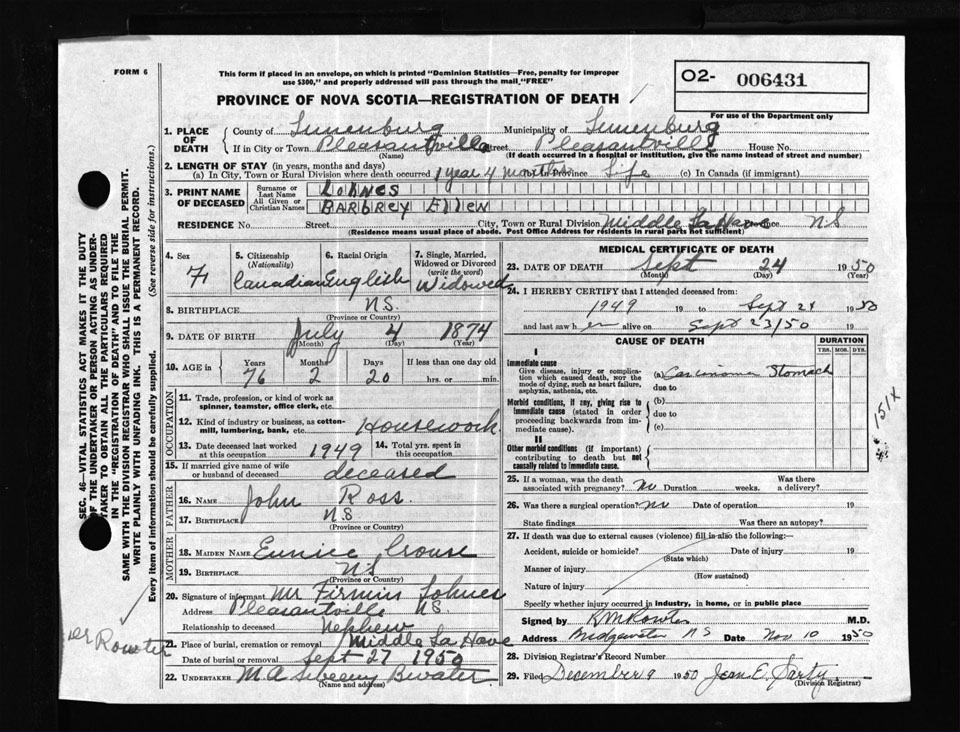 FORM 6
This form if placed in an envelope, on which is printed "Dominion Statistics—Free, penalty for improper
use $300," and properly addressed will pass through the mail "FREE"
02- 006431
PROVINCE OF NOVA SCOTIA—REGISTRATION OF DEATH
For use of the Department only
1. PLACE OF DEATH
County of Lunenburg Municipality of Lunenburg
If in City or Town Pleasantville Street Pleasantville House No.
(Name) (If death occurred in a hospital or institution, give the name instead of street and number)
2. LENGTH OF STAY (in years, months and days)
(a) In City, Town or Rural Division where death occurred 1 year 4 months Province Life (c) In Canada (if immigrant)
3. PRINT NAME OF DECEASED
Surname or Last Name Lohnes
All Given or Christian Names BARBREY Ellen
RESIDENCE No. Street City, Town or Rural Division Middle La Have NS
(Residence means usual place of abode. Post Office Address for residents in rural parts not sufficient)
4. Sex F
5. Citizenship (Nationality) Canadian
6. Racial Origin English
7. Single, Married, Widowed or Divorced (write the word) Widowed
8. BIRTHPLACE N.S.
(Province or Country)
9. DATE OF BIRTH July 4 1874
(Month) (Day) (Year)
10. AGE in Years Months Days If less than one day old
76 2 20 hrs. or min.
OCCUPATION
11. Trade, profession, or kind of work as spinner, teamster, office clerk, etc.
12. Kind of industry or business, as cotton-mill, lumbering, bank, etc. Housework
13. Date deceased last worked at this occupation 1949
14. Total yrs. spent in this occupation
15. If married give name of wife or husband of deceased deceased
FATHER
16. NAME John Ross.
17. BIRTHPLACE N.S
(Province or Country)
MOTHER
18. MAIDEN NAME Eunice Crouse
19. BIRTHPLACE N'S
(Province or Country)
20. Signature of informant Mr Firmin Lohnes
Address Pleasantville NS.
Relationship to deceased nephew
21. Place of burial, cremation or removal Middle La Have
Date of burial or removal Sept 27 1950
22. UNDERTAKER M A Bwater
(Name and address)
MEDICAL CERTIFICATE OF DEATH
23. DATE OF DEATH Sept 24 1950
(Month) (Day) (Year)
24. I HEREBY CERTIFY that I attended deceased from:
1949 19 to Sept 24 1950
and last saw her alive on Sept 23/50 19
CAUSE OF DEATH DURATION
YRS. MOS. DYS.
I
Immediate cause
Give disease, injury or complication which caused death, not the mode of dying, such as heart failure, asphyxia, asthenia, etc.
(a) Carcinoma Stomach
due to
Morbid conditions, if any, giving rise to immediate cause (stated in order proceeding backwards from immediate cause).
(b)
due to
(c)
II
Other morbid conditions (if important) contributing to death but not causally related to immediate cause.
151X
25. If a woman, was the death associated with pregnancy? No Duration weeks. Was there a delivery?
26. Was there a surgical operation? No Date of operation 19
State findings Was there an autopsy?
27. If death was due to external causes (violence) fill in also the following:—
Accident, suicide or homicide? Date of injury 19
(State which)
Manner of injury
(How sustained)
Nature of injury
Specify whether injury occurred in industry, in home, or in public place
Signed by M.D.
Address Bridgewater N S Date Nov 10 1950
28. Division Registrar's Record Number
29. Filed December 9 1950 Jean E. Sarty
(Division Registrar)
SEC. 46—VITAL STATISTICS ACT MAKES IT THE DUTY
OF THE UNDERTAKER OR PERSON ACTING AS UNDER-
TAKER TO OBTAIN ALL THE PARTICULARS REQUIRED
IN THE "REGISTRATION OF DEATH" AND TO FILE THE
SAME WITH THE DIVISION REGISTRAR WHO SHALL ISSUE THE BURIAL PERMIT.
WRITE PLAINLY WITH UNFADING INK. THIS IS A PERMANENT RECORD.
Every item of information should be carefully supplied. (See reverse side for instructions.)